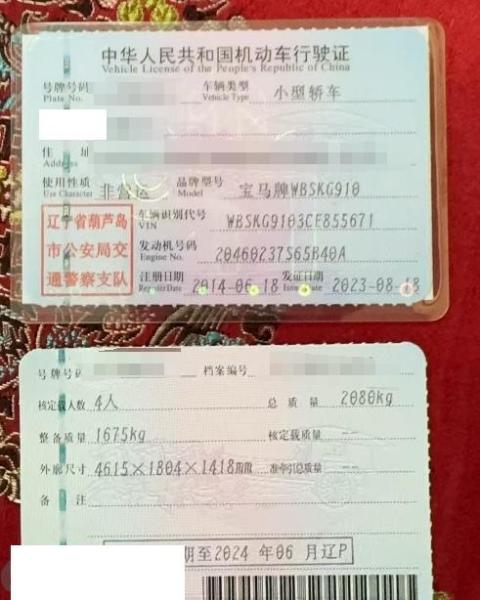 中华人民共和国机动车行驶证
Vehicle License of the People's Republic of China
号牌号码 车辆类型 小型轿车
Plate No. Vehicle Type
住 址
Address
使用性质 非营运 品牌型号 宝马牌WBSKG910
Use Character Model
辽宁省葫芦岛
市公安局交
通警察支队
车辆识别代号 WBSKG9103CE855671
VIN
发动机号码 20460237S65B40A
Engine No.
注册日期 2014-06-18 发证日期 2023-08-18
Register Date Issue Date
号牌号码 档案编号
核定载人数 4人 总 质 量 2080kg
整备质量 1675kg 核定载质量 --
外廓尺寸 4615×1804×1418 准牵引总质量 --
备 注
期至2024 年06 月辽P